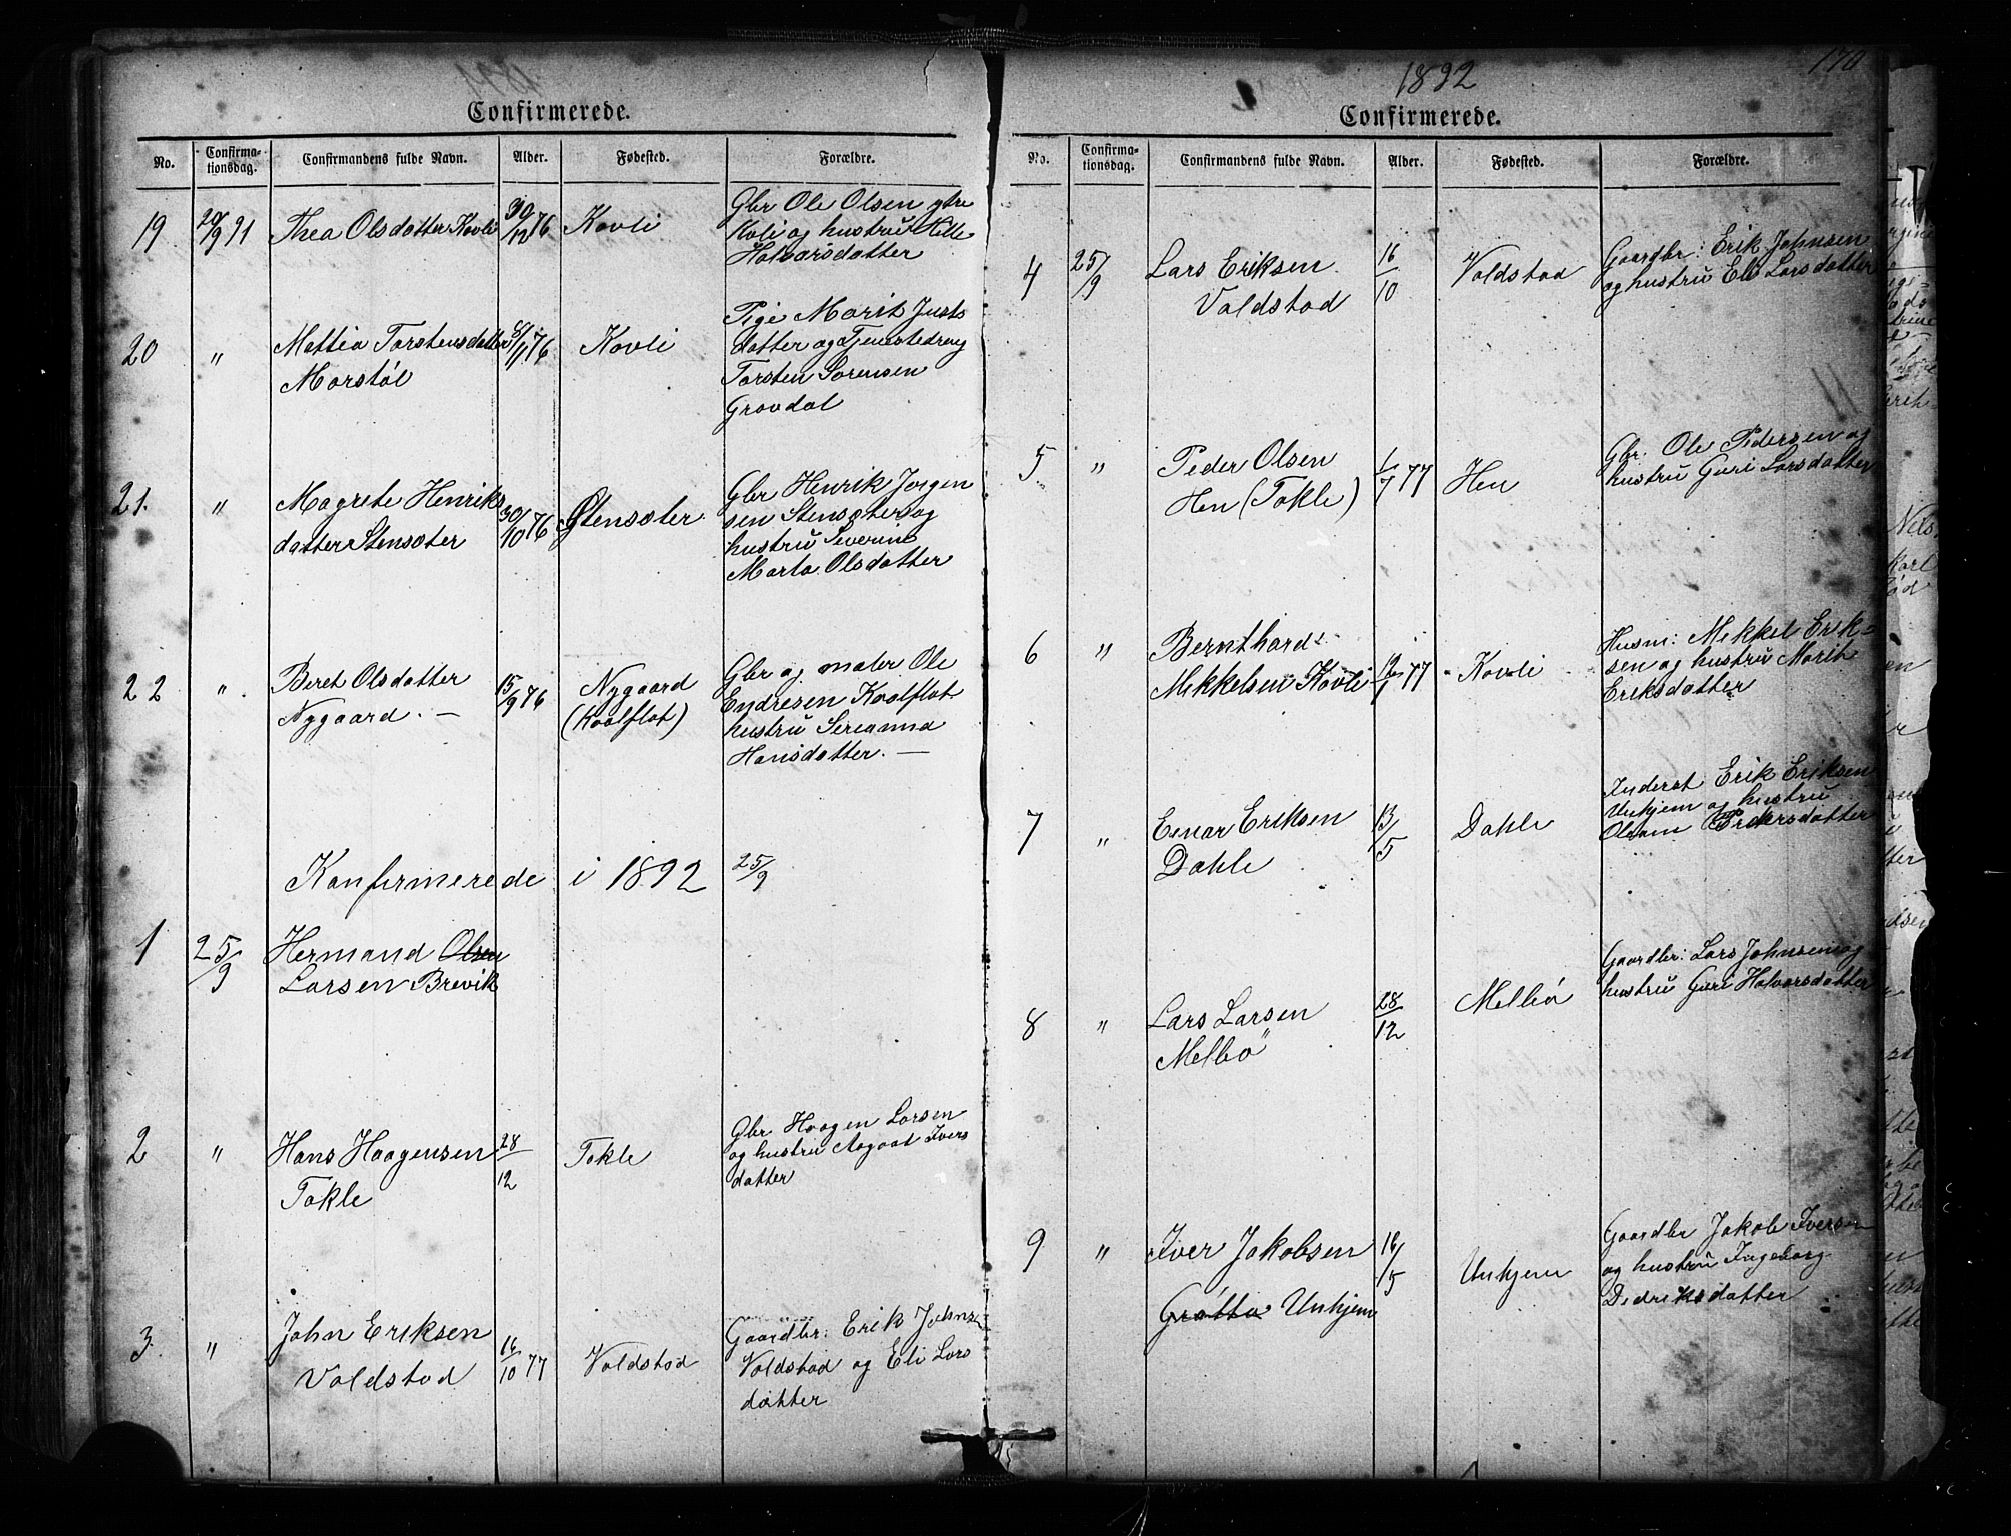 Confirmerede.
No. Confirma-tionsdag. Confirmandens fulde Navn. Alder. Fødested. Forældre.
19 20/9 91 Thea Olsdatter Kovli 30/12 76 Kovli Gbr Ole Olsen ytre
Kvli og hustru Kelle
Halvorsdatter
20 " Mattea Torstensdatter 76 Kovli Pige Marit Justs
Morstøl datter og Tjenestedreng
Torsten Sørensen
Grovdal
21. " Magrete Henriks 30/10 76 Stensæter Gbr Henrik Jørgen
datter Stensæter sen Stensæter og
hustru Severine
Marta Olsdatter
22 " Beret Olsdatter 15/9 76 Nygaard Gbr og maler Ole
Nygaard. — (Kvalflot) Endresen Kvalflot
hustru Serianna
Hansdatter. —
Konfirmerede i 1892 25/9
1 25/9 Hermand Olsen
Larsen Brevik
2 " Hans Haagensen 28/12 Tokle Gbr Haagen Larsen
Tokle og hustru Aagaat Ivers
datter
3. " John Eriksen 16/10 77 Voldstad Gaardbr: Erik Johnsen
Voldstad Voldstad og Eli Lars
datter
170
1892
Confirmerede.
No. Confirma-tionsdag. Confirmandens fulde Navn. Alder. Fødested. Forældre.
4 25/9 Lars Eriksen 16/10 Voldstad Gaardbr: Erik Johnsen
Voldstad og hustru Eli Larsdatter
5 " Peder Olsen 1/7 77 Hen Gbr: Ole Pedersen og
Hen (Tokle) hustru Guri Larsdatter
6 " Bernthard 77 Kovli Husm: Mikkel Erik-
Mikkelsen Kovli sen og hustru Marit
Eriksdatter
7 " Einar Eriksen 13/5 Dahle Inderst Erik Eriksen
Dahle Unhjem og hustru
8 " Lars Larsen 28/12 Melbø Gaardbr: Lars Johnsen og
Melbø hustru Guri Halvorsdatter
9 " Iver Jakobsen 16/5 Unhjem Gaardbr Jakob Iversen
Grøtta Unhjem og hustru Ingeborg
Didriksdatter